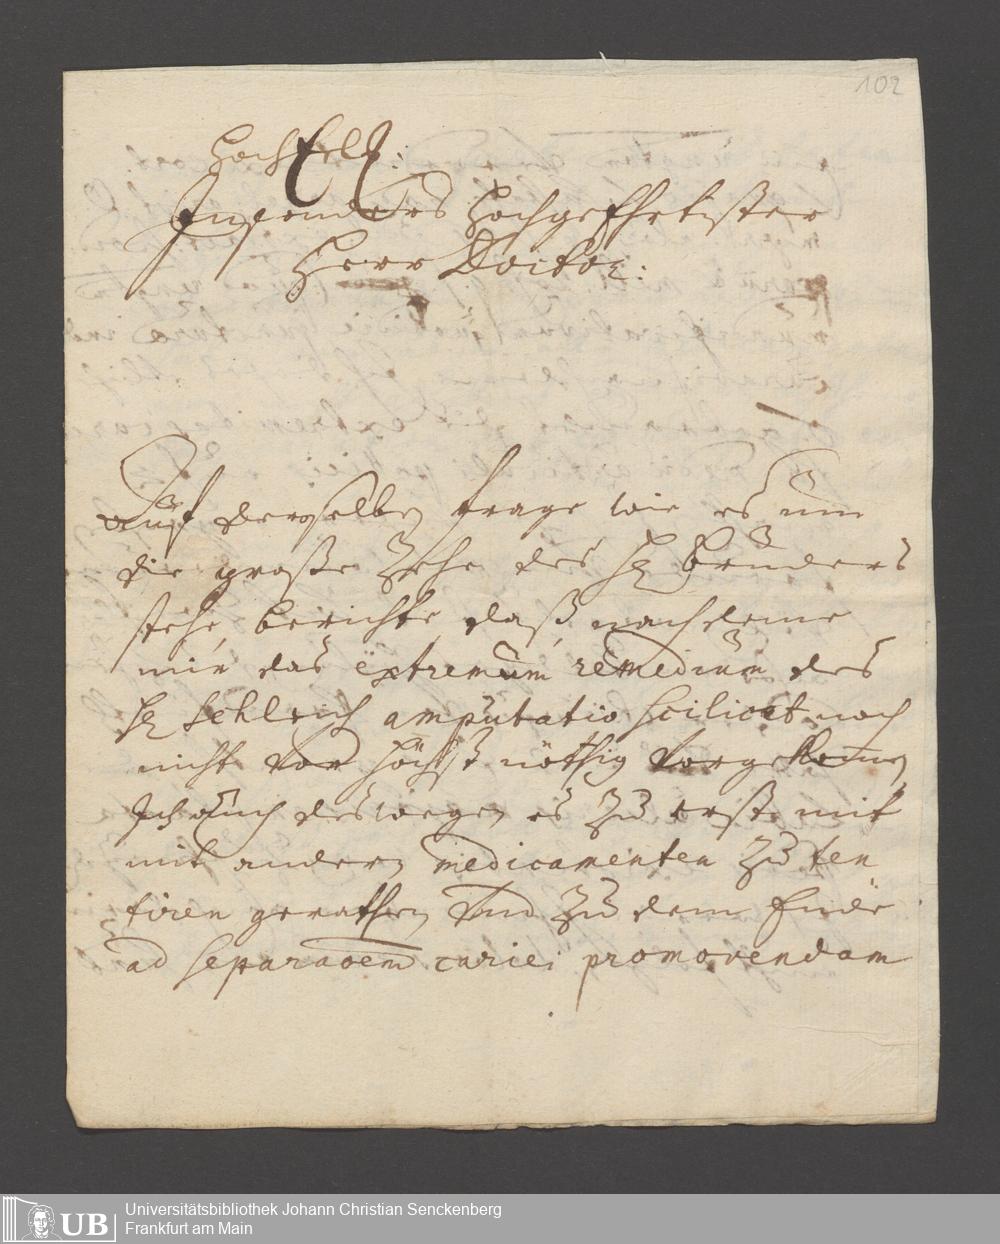 102
HochEdl.
Insonders Hochgeehrtester
Herr Doctor.
Auf derselben frage wie es um
die große Zehe des H. Bruders
stehe, berichte, daß, nachdeme
mir das extremum remedium des
H. Schleich amputatio scilicet noch
nicht vor höchst nöthig vorgekomen
Ich auch deswegen es zu erst mit
mit andern medicamenten zu ten
tiren gerathen und zu dem Ende
ad separaoem cariei promovendam
UB
Universitätsbibliothek Johann Christian Senckenberg
Frankfurt am Main